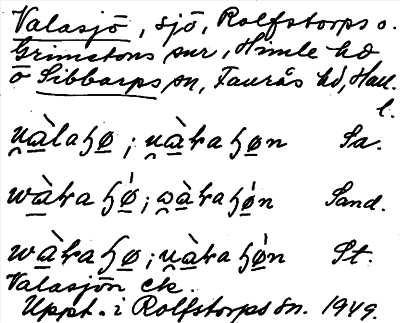 Valasjö, sjö, Rolfstorps o.
Grimetons snr, Himle hd
o Sibbarps sn, Faurås hd, Hall.
l.
u̯àlaɧø; u̯àraɧøn Sa.
wàraɧǿ; wàraɧǿn Sand.
wàraɧø; u̯àraɧøn St.
Valasjön ek.
Uppt. i Rolfstorps sn. 1949.